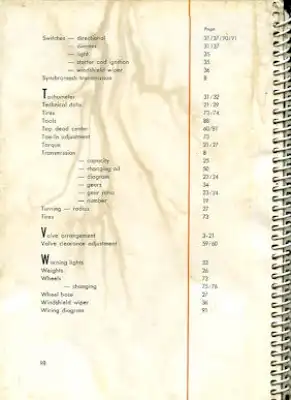 Page
Switches — directional 31/37/90/91
— dimmer 31/37
— light 35
— starter and ignition 35
— windshield wiper 36
Synchromesh transmission 8
Tachometer 31/32
Technical data 21-28
Tires 73-74
Tools 88
Top dead center 60/87
Toe-in adjustment 72
Torque 21-27
Transmission 8
— capacity 25
— changing oil 50
— diagram 23/24
— gears 34
— gear ratio 23/24
— number 19
Turning — radius 27
Tires 73
Valve arrangement 3-21
Valve clearance adjustment 59/60
Warning lights 32
Weights 26
Wheels 72
— changing 75-76
Wheel base 27
Windshield wiper 36
Wiring diagram 91
98